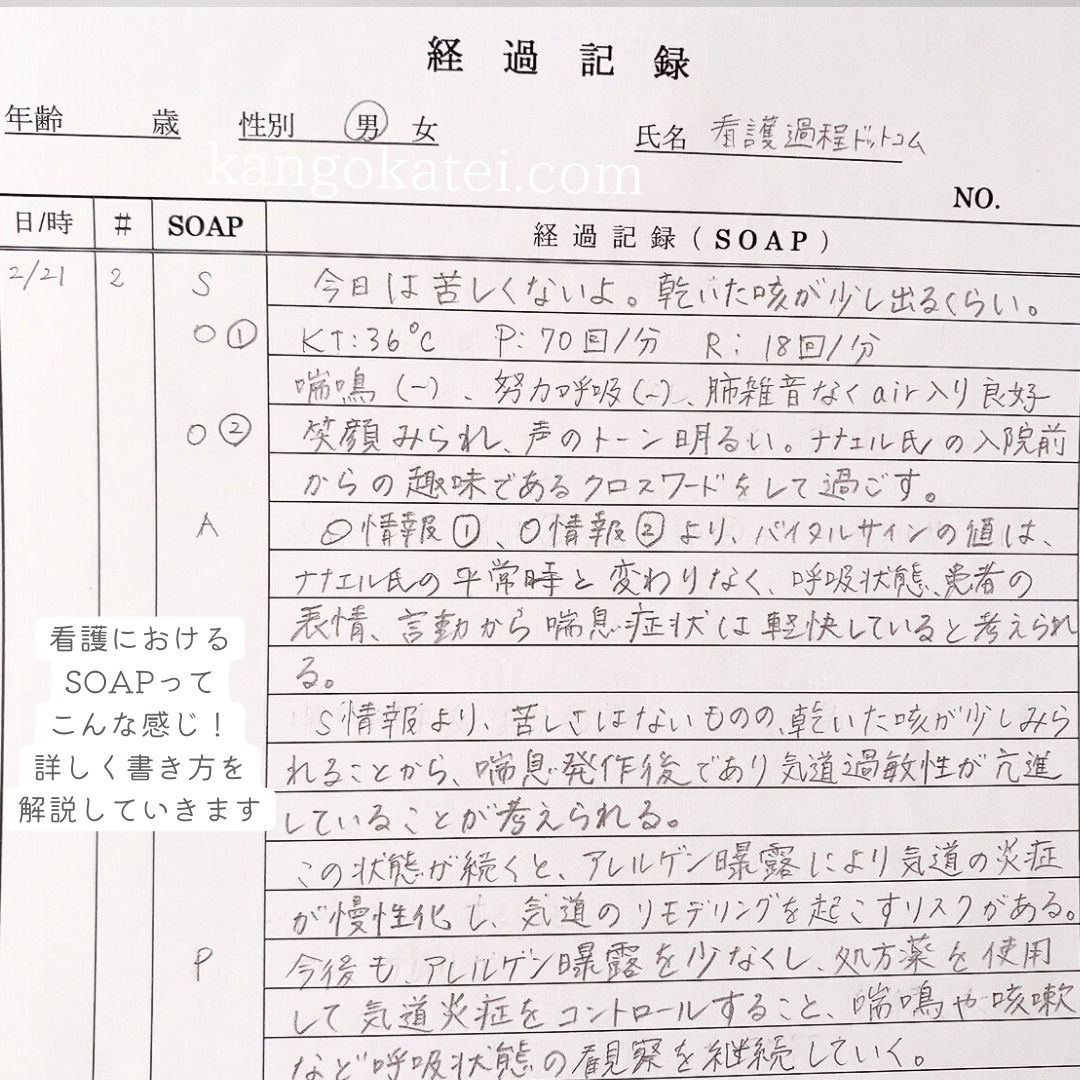 経過記録
年齢 歳 性別 男 女 氏名 看護過程ドットコム
kangokatei.com
NO.
日/時 # SOAP 経過記録(SOAP)
2/21 2 S 今日は苦しくないよ。乾いた咳が少し出るくらい。
O① KT:36℃ P:70回/分 R:18回/分
喘鳴(-)、努力呼吸(-)、肺雑音なくair入り良好
O② 笑顔みられ、声のトーン明るい。ナナエル氏の入院前
からの趣味であるクロスワードをして過ごす。
A O情報①、O情報②より、バイタルサインの値は、
ナナエル氏の平常時と変わりなく、呼吸状態、患者の
表情、言動から喘息症状は軽快していると考えられ
る。
S情報より、苦しさはないものの、乾いた咳が少しみら
れることから、喘息発作後であり気道過敏性が亢進
していることが考えられる。
この状態が続くと、アレルゲン曝露により気道の炎症
が慢性化し、気道のリモデリングを起こすリスクがある。
P 今後も、アレルゲン曝露を少なくし、処方薬を使用
して気道炎症をコントロールすること、喘鳴や咳嗽
など呼吸状態の観察を継続していく。
看護における
SOAPって
こんな感じ!
詳しく書き方を
解説していきます